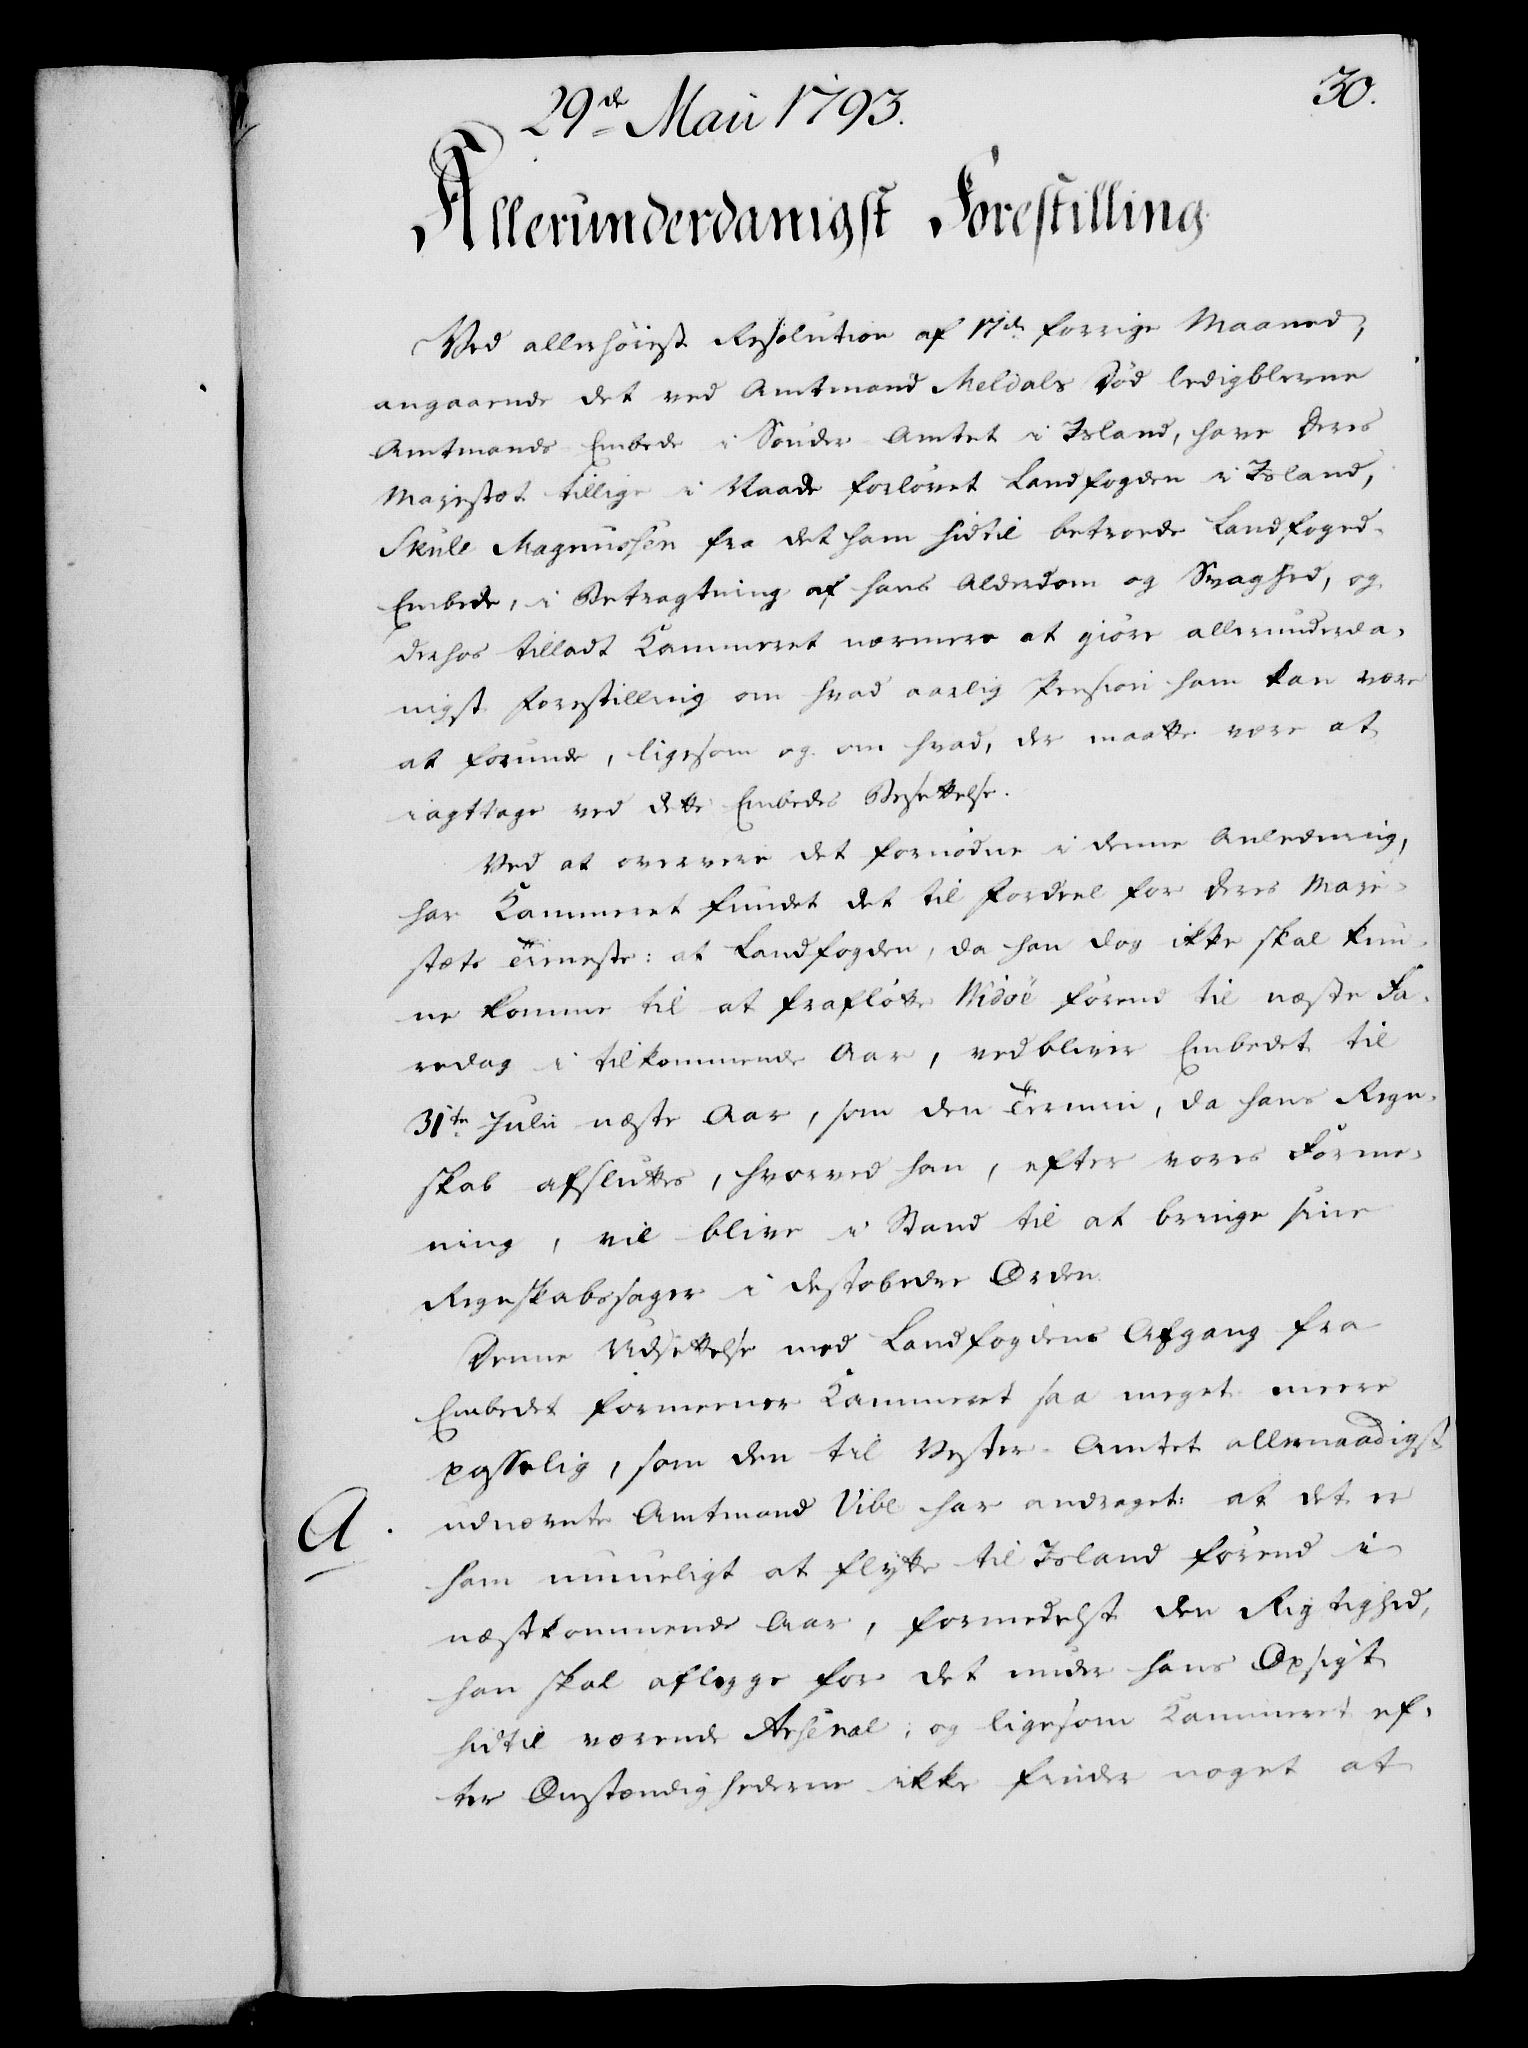 30.
29de Maii 1793.
Allerunderdanigst Forestilling.
Ved allerhöiest Resolution af 17de forrige Maaned,
angaaende det ved Amtmand Meldals Död ledigblevne
Amtmands Embede i Sönder-Amtet i Island, have Deres
Majestæt tillige i Naade forlövet Landfogden i Island,
Skule Magnussen fra det ham hidtil betroede Landfoged-
Embede, i Betragtning af hans Alderdom og Svaghed, og
derhos tilladt Kammeret nærmere at giöre allerunderda-
nigst Forestilling om hvad aarlig Pension ham kan være
at forunde, ligesom og om hvad, der maatte være at
iagttage ved dette Embedes Besettelse.
Ved at overveie det fornödne i denne Anledning,
har Kammeret fundet det til Fordeel for Deres Maje-
stæts Tieneste: at Landfogden, da han dog ikke skal kun-
ne komme til at fraflötte Widöe förend til næste Fa-
redag i tilkommende Aar, vedbliver Embedet til
31te Julii næste Aar, som den Termin, da hans Regn-
skab afsluttes, hvorved han, efter vores Forme-
ning, vil blive i Stand til at bringe sine
Regnskabssager i destobedre Orden.
Denne Udsettelse med Landfogdens Afgang fra
Embedet formeener Kammeret saa meget meere
passelig, som den til Vester-Amtet allernaadigst
A.
udnævnte Amtmand Vibe har andraget: at det er
ham umueligt at flytte til Island förend i
næstkommende Aar, formedelst den Rigtighed,
han skal aflegge for det under hans Opsigt
hidtil værende Arsenal; og ligesom Kammeret ef-
ter Omstændighederne ikke finder noget at